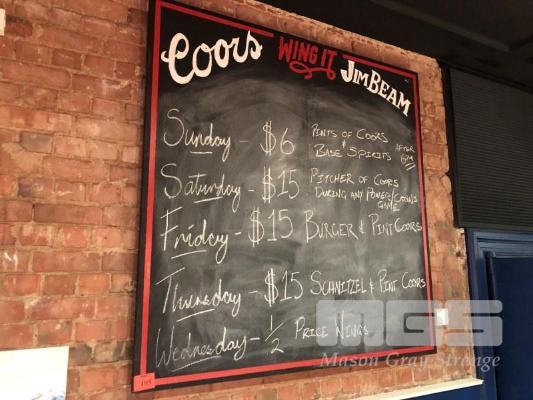 Coors WING IT JIM BEAM
Sunday - $6 PINTS OF COORS & BASE SPIRITS AFTER 6PM
Saturday - $15 PITCHER OF COORS
DURING ANY POWER/CROWS GAME
Friday - $15 BURGER & PINT COORS
Thursday - $15 SCHNITZEL & PINT COORS
Wednesday - 1/2 PRICE WINGS
MGS
Mason Gray Strange